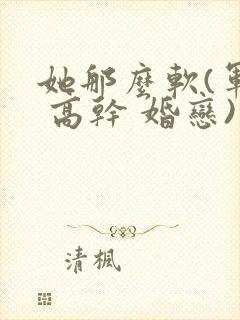 她那麼軟(軍
高幹 婚戀)
清楓